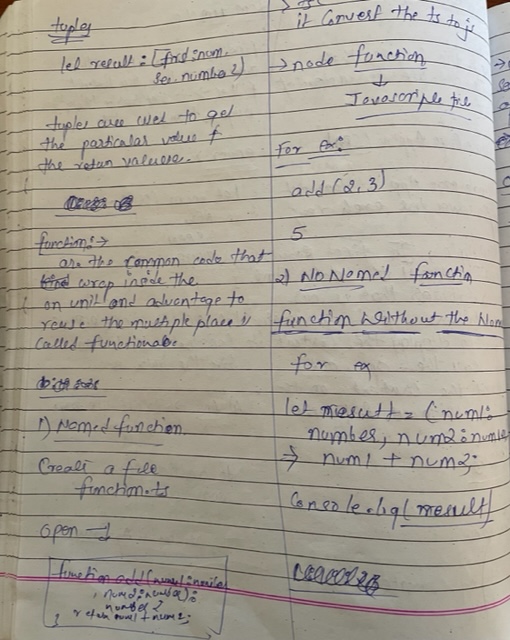 tuples
let result : [first:num,
se. number2)
tuples are used to get
the particalar value f
the retan value
functions →
are the common code that
wrap inside the
on unit and advantage to
reuse the multiple place is
called functionable
1) Named function
Create a file
function.ts
open →
function add(num1:number
, num2:number):
number {
retan num1 + num2;
}
it Convert the ts to js
→ node function
↓
Javascriple file
For ex:
add (2, 3)
5
2) No Named function
function Without the Nam
for ex
let mesult = (num1:
number, num2:numbe
→ num1 + num2;
Console.log(mesult)